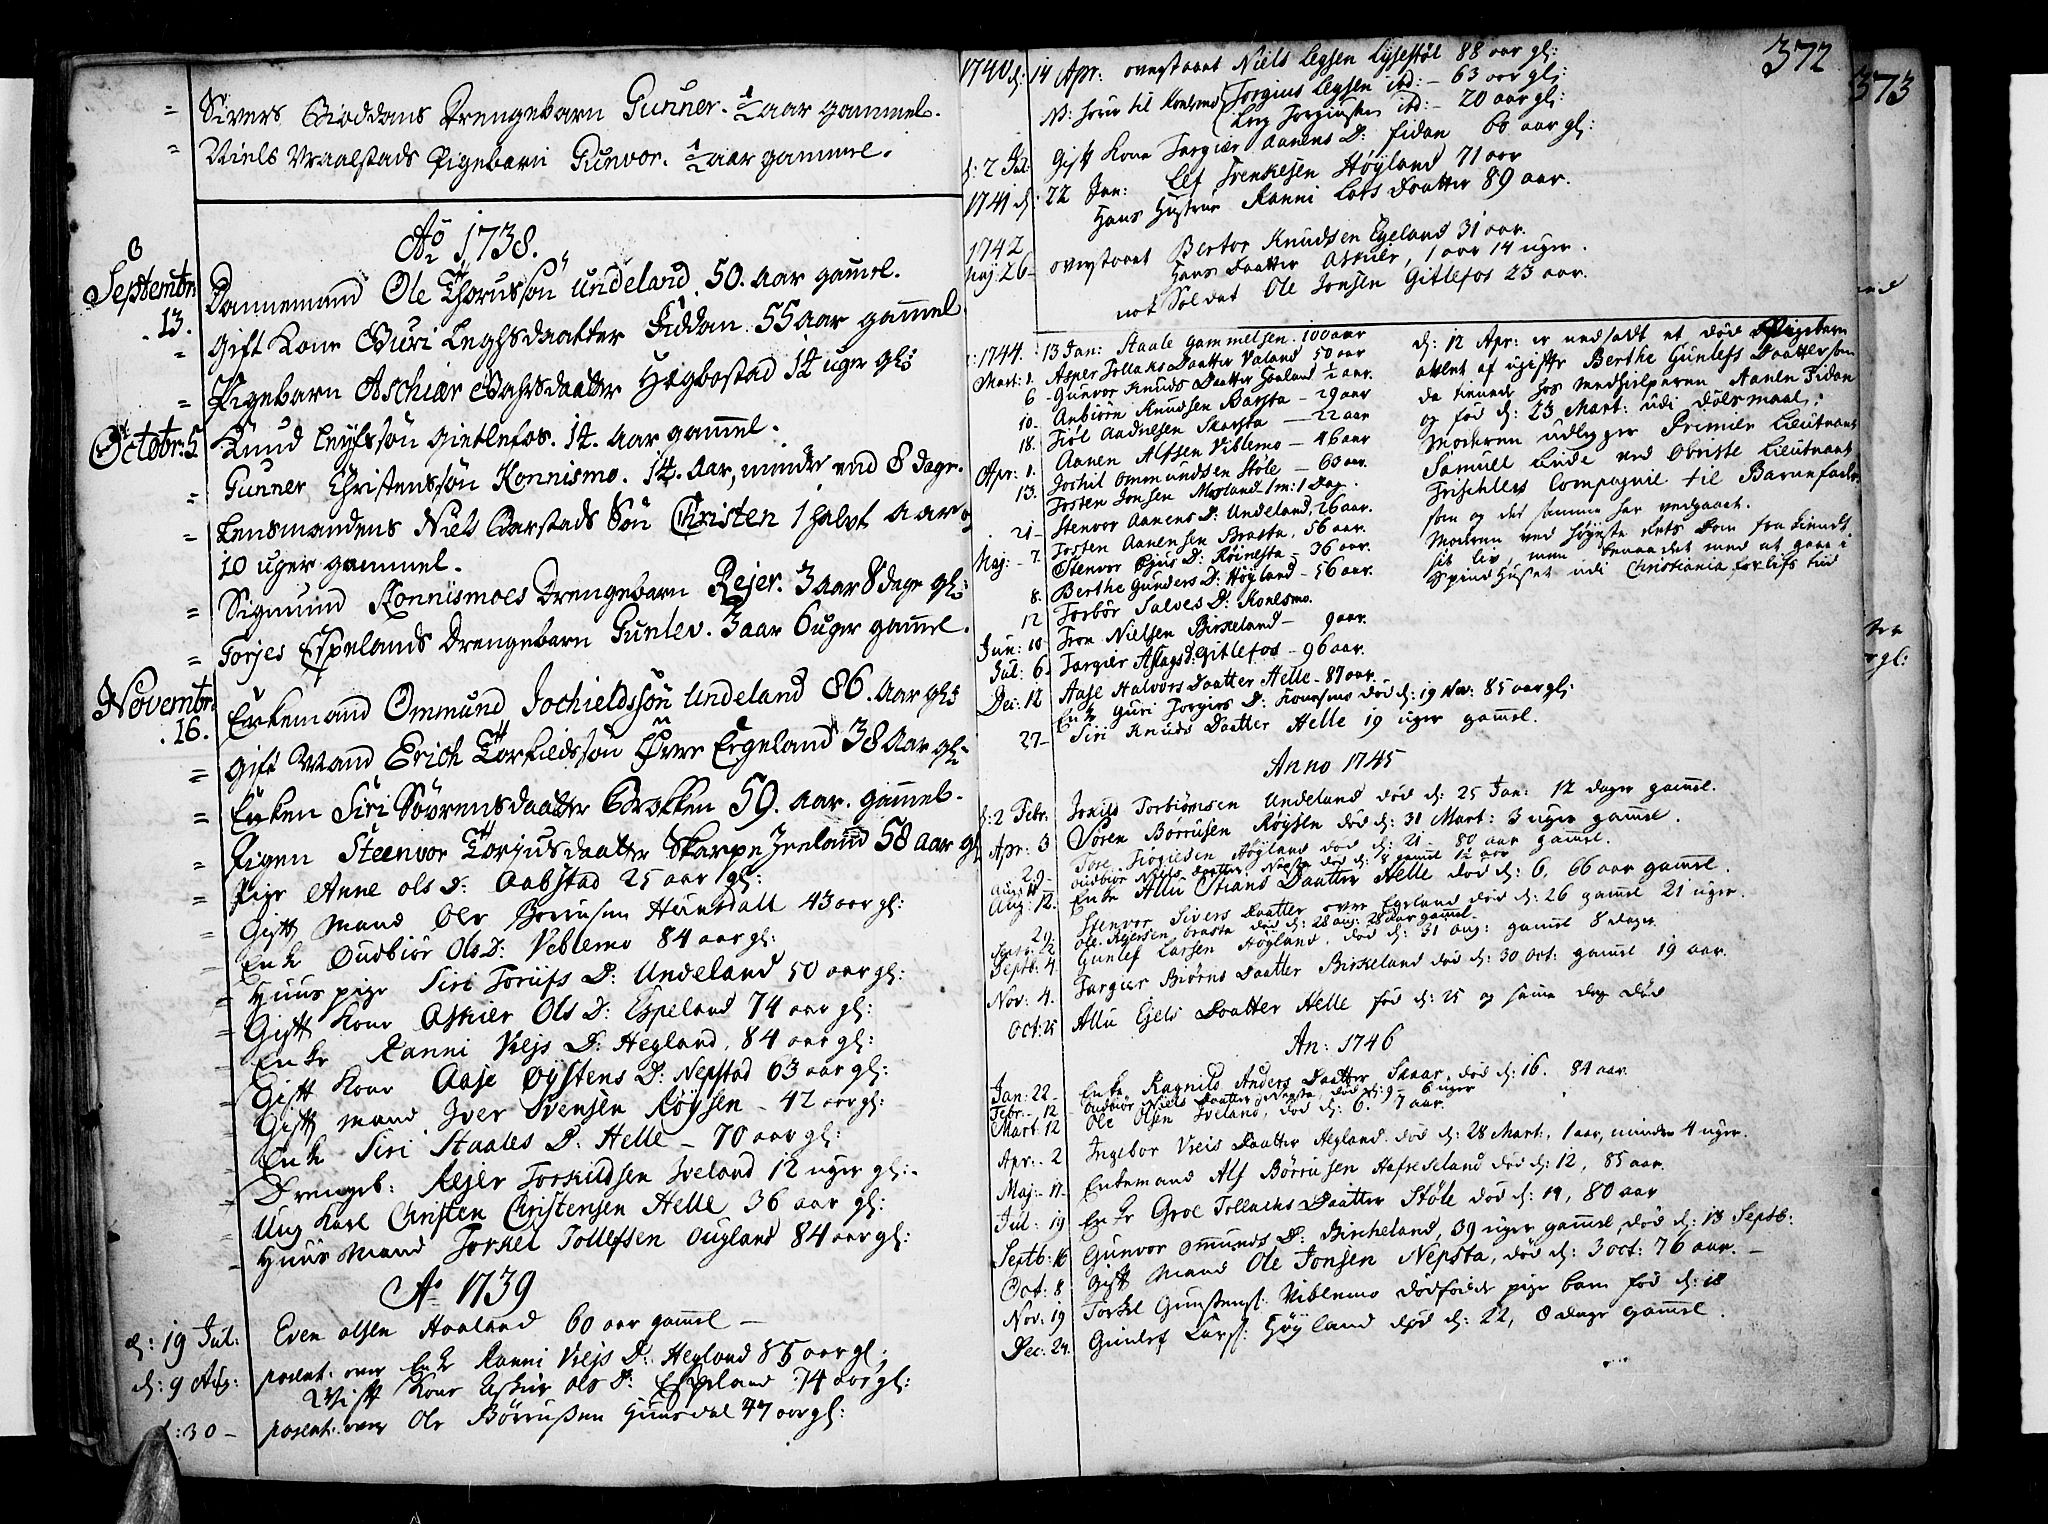 = Sivers Gioddans Drengebarn Gunner. 1/2 aar gammel.
= Niels Vraalstads Pigebarn Gunvor. 1/2 aar gammel.
Ao 1738.
Septembr 13. Dannemand Ole Thorusson Undeland. 50. Aar gamel.
= Gift Kone Guri Leghsdaatter Fiddan 55 aar gammel
= Pigebarn Aschiær Bahrsdaatter Hægbostad 14 uger gl:
Octobr: 5 Knud Leifssön Gietlefos. 14. Aar gammel.
= Gunner Christenssön Konnismo. 14. Aar, mindre end 8 dage.
= Lensmandens Niels Barstads Sön Christen 1 halvt aar og
10 uger gammel.
= Sigmund Konnismoes Drengebarn Rejer. 3 aar 8 dage gl:
= Torjes Espelands Drengebarn Gunlev. 3 aar 6 uger gamel.
Novembr. 16. Enkemand Ommund Jochieldssön Undeland 86. Aar gl:
= Gift Mand Erich Torkieldssön Øvre Ergeland 38 Aar gl:
= Enken Siri Sövrensdaatter Brokken 59. Aar. gammel.
= Pigen Steenvor Torjusdaatter Skarpe Jreland 58 aar gl
= Pige Anne Ols D: Aabstad 25 aar gl:
= Gift Mand Ole Børrusen Hunsdall 43 aar gl:
= Enke Oudbiør Ols D: Veblemo 84 aar gl:
= Huus pige Siri Toriuss D: Undeland 50 aar gl:
= Gift Kone Askier Ols D: Espeland 74 aar gl:
= Enke Ranni Viejs D: Hegland, 84 aar gl:
= Gift Kone Aase Øystens D: Nepstad 63 aar gl:
= Gift mand Iver Svensen Røysen - 42 aar gl:
= Enke Siri Staales D: Helle - 70 aar gl:
= Drengeb: Rejer Torkildsen Iveland 12 uger gl:
= Ung Karl Christen Christensen Helle 36 aar gl:
= Huus Mand Torkel Tollefsen Ougland 84 aar gl:
Ao 1739
d: 19 Jul: Even Olsen Haaland 60 aar gamel -
d: 9 Aug: Enke Ranni Viejs D: Hegland 85 aar gl:
Gift Kone Askier Ols D: Espeland 74 aar gl:
: 30 - Ole Børrußen Hunsdal 47 aar gl:
372
373
1740 d: 14 Apr: overstaaet Niels Legsen Lysestøl 88 aar gl:
Torgius Legsen ibd: - 63 aar gl:
Leg Torgiusen ibd: - 20 aar gl:
d: 2 Jul: Gift Kone Targier Aanens D: Fidan 60 aar gl:
1741 d: 22 Jan: Lef Trenkelsen Høyland 71 aar
Hans Hustrue Ranni Lars Daatter 89 aar.
1742 Maj 26 - overstaaet Bertor Knudsen Egeland 31 aar.
Hans Daatter Askier, 1 aar 14 uger.
nok Soldat Ole Jonsen Gitlefos 23 aar.
1744. 13 Jan: Staale Gammelsen. 100 aar
Mart: 1. Asper Tollaks Daatter Valand 50 aar
6 - Gunvor Knuds Daatter Haaland 1/2 aar.
10. Anbiørn Knudsen Barsta - 29 aar
18. Fiøl Andrelsen Skarsta - 22 aar
Apr: 1. Aanen Alfsen Viblemo - 46 aar
13. Jockil Ommundsen Støle - 63 aar.
Tosten Jonsen Mosland 1 m: 1 Dag.
21 - Stenvor Aanens D: Undeland, 26 aar.
Maj: - 7. Tosten Aanensen Brasta, 56 aar.
Stenvor Gjus D: Røinesta - 36 aar.
8. Berthe Gunders D: Høyland - 56 aar.
12 Torbør Salves D: Konlsmo.
Jun: 10. Tron Nielsen Birkeland - 9 aar.
Jul: 6. Targier Aslags D: Gitlefos - 96 aar.
Dec: 12 Aase Halvors Daatter Helle - 87 aar.
Enke Guri Torgirs D: død d: 19 Nov: 85 aar gl:
27 - Siri Knuds Daatter Helle 19 uger gammel.
d: 12 Apr: er nedsadt et død Pigebarn
avlet af ugifte Berthe Gunlefs Daatter som
da tiente hos Medhielperen Aanen Fidan
og fød d: 23 Mart: udi dølsmaal,
Moderen udlegger Premier Lieutnant
Samuel Linde ved Obriste Lieutnant
Frischlers Compagnie til Barnefader
som og det samme har vedgaaet.
Moderen ved Høyeste Rets Dom fra kiendt
sit liv, men benaadet med at gaae i
SpindHuset udi Christiania for lifs tiid
Anno 1745
d: 2 Febr: Torbiørnsen Undeland død d: 25 Jan: 12 dager gammel.
Apr: 3 Søren Børrusen Røysen død d: 31 Mart: 3 uger gammel.
29 - Høyland død d: 21 - 80 aar gammel.
Aug: Oudbiør Niels Daatter Nepsta død d: 8 gamel 12 aar
Aug: 12. Enke Allu Stians Daatter Helle død d: 6, 66 aar gammel.
29 Stenvor Sivers Daatter øvre Egeland død d: 26 gammel 21 uger.
Ole Rejersen Brasta død d: 28 Aug: 28 aar gammel.
Septb: 4. Gunlef Larsen Høyland, død d: 31 Aug: gammel 8 dager.
Nov: 4. Targier Biørns Daatter Birkeland død d: 30 Oct: gammel 19 aar.
Oct: 25 Allu Ejels Daatter Helle fød d: 25 og same dag død
An: 1746
Jan: 22 - Enke Ragnild Anders Daatter Skaar, død d: 16. 84 aar.
Febr: - 12 Oudbiør Niels Daatter Nepsta, død d: 9 - 6 uger
Mart: 12 Ole Olsen Iveland, død d: 6. 7 aar.
Apr: - 2 Ingebor Vieis Daatter Hegland. død d: 28 Mart: 1 aar, minder 4 uger.
Maj: - 17 - Enkemand Alf Børrusen Hafredeland død d: 12, 85 aar.
Jul: 19 Enke Groe Tollachs Daatter Støle død d: 14, 80 aar
Septb: 16 Gunvor Omunds D: Bircheland, 39 uger gamel, død d: 13 Septb:
Oct: 8 Gift Mand Ole Jonsen Nepsta, død d: 3 Oct: 76 aar. -
Nov: 19 Torkel Gunstens: Viblemo dødfødde pige barn fød d: 18
Dec: 24. Gunlef Lars: Høyland død d: 22, 8 dage gammel.